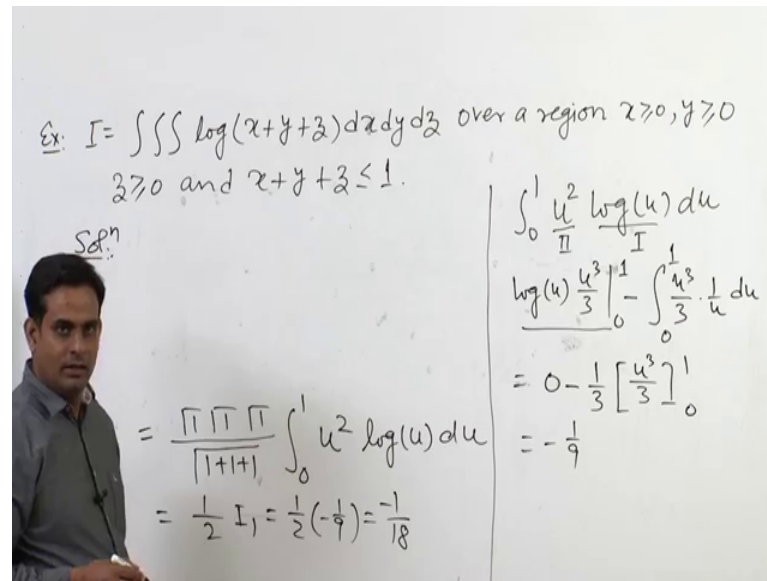 Ex: I = ∫∫∫ log(x+y+z) dx dy dz over a region x≥0, y≥0
z≥0 and x+y+z ≤ 1.
Solⁿ:
= (Γ1 Γ1 Γ1)/Γ(1+1+1) ∫₀¹ u² log(u) du
= 1/2 I₁ = 1/2 (-1/9) = -1/18
∫₀¹ u² log(u) du
II I
log(u) u³/3 |₀¹ - ∫₀¹ u³/3 · 1/u du
= 0 - 1/3 [u³/3]₀¹
= -1/9